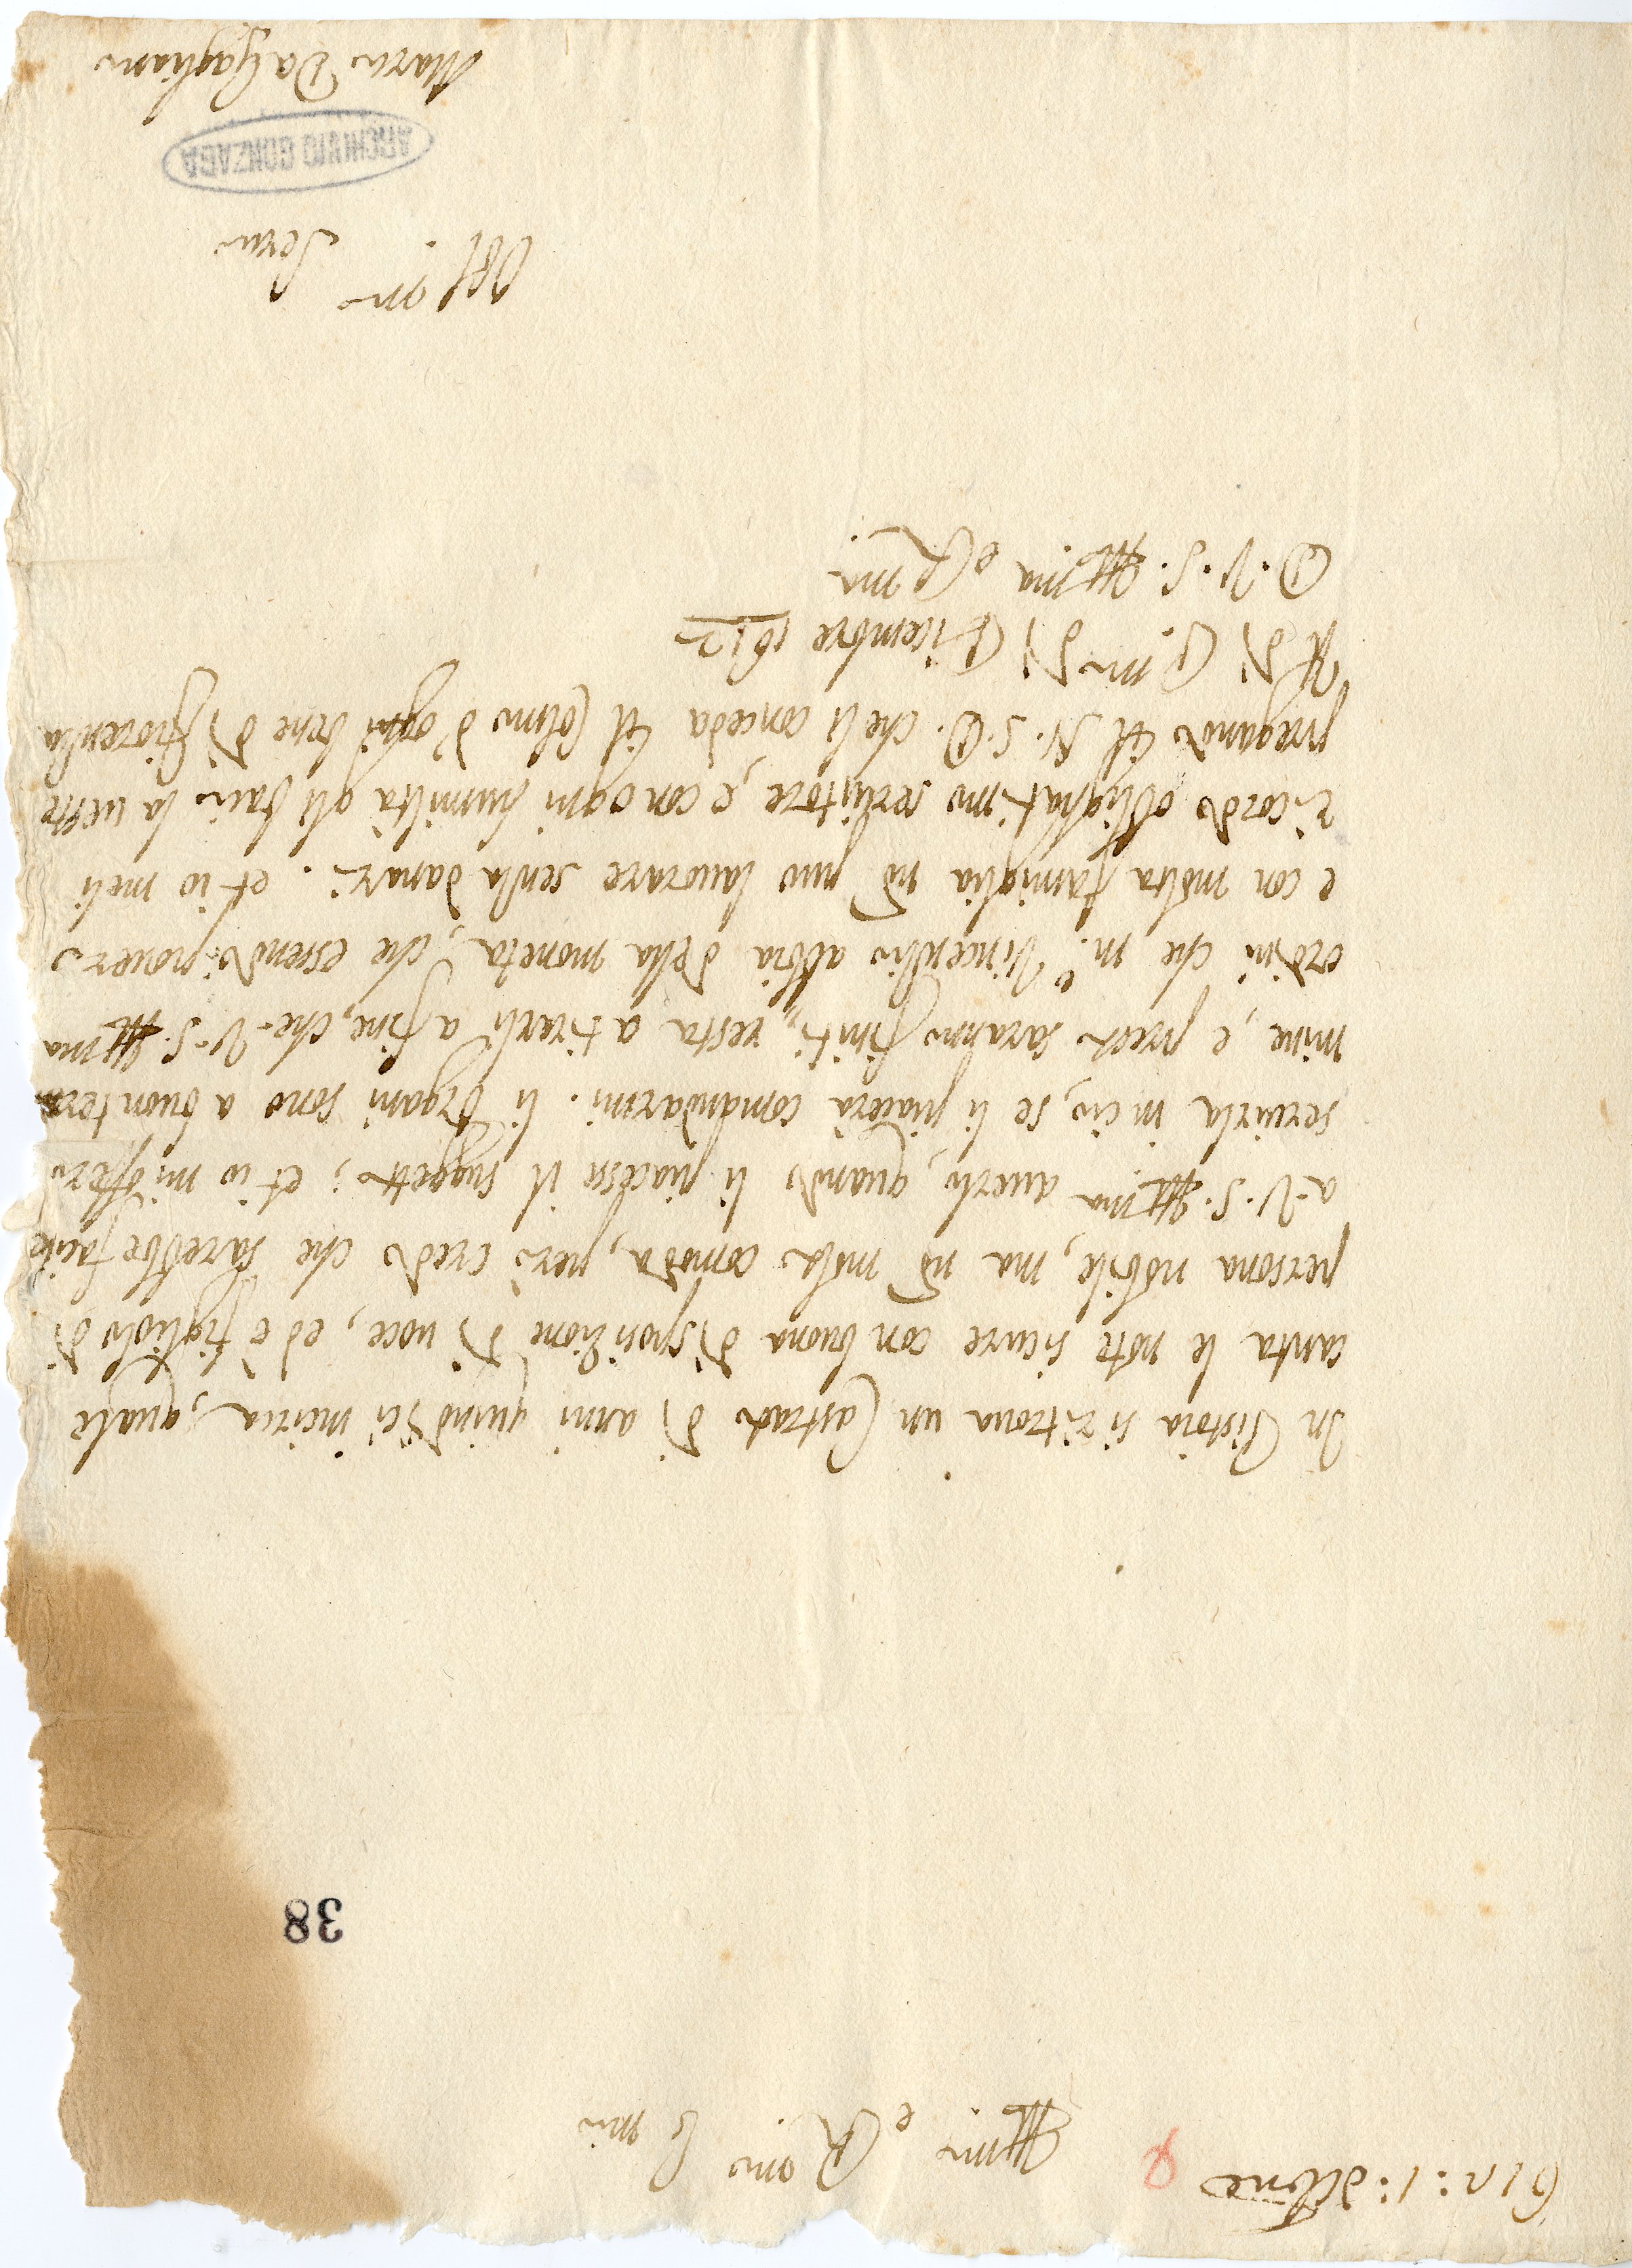 612: 1: Xbre
Ill.mo e R.mo S. mio
38
In Pistoia si ritrova un Castrato di anni quindici incirca, quale
canta le note sicure con buona dispositione di voce, ed è figliolo di
persona nobile, ma nō molto comoda, però credo che sarebbe facile
a V. S. Ill.ma averlo, quando li piacesse il suggetto; et io mi offero
servirla in ciò, se li piacerà comandarmi. li Organi sono a buon ter
mine, e presto saranno finiti, resta a tirarli a fine, che V. S. Ill.ma
ordini che m.o Vincentio abbia della moneta, che essendo povero
e con molta famiglia nō puo lavorare senza danari. et io meli
ricordo obligatiss.mo servitore, e con ogni humiltà gli bacio la veste
pregando il N. S. D. che li conceda il Colmo d'ogni bene di fiorenza
il dì P.mo di Dicembre 1612
D. V. S. Ill.ma e R.ma
Obl.mo Servo
ARCHIVIO GONZAGA
Marco Da Gagliano